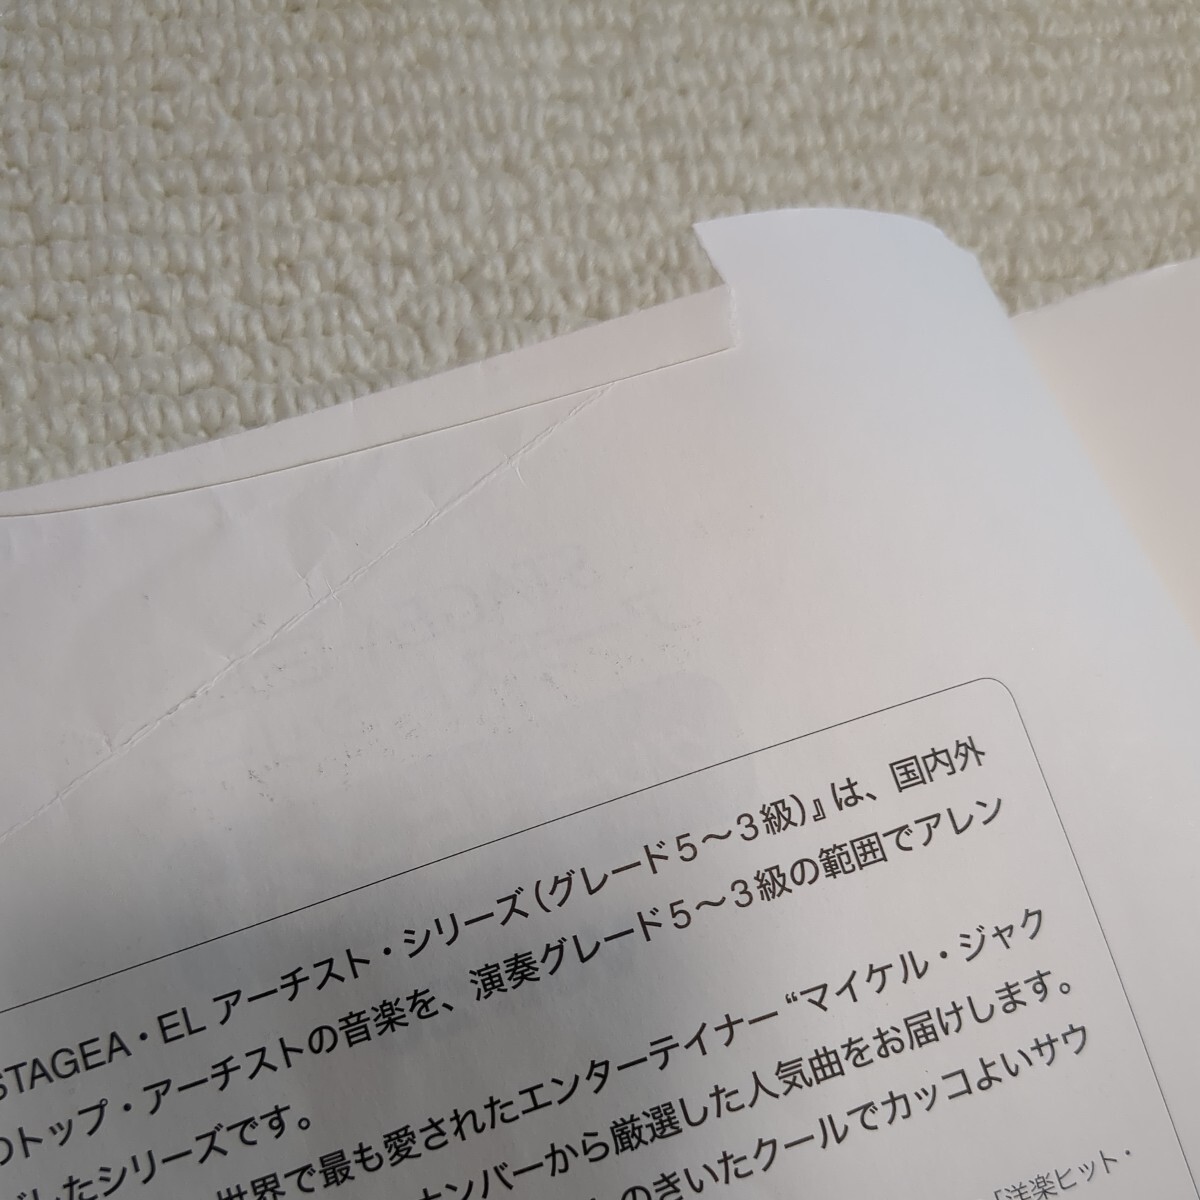 STAGEA・EL アーチスト・シリーズ（グレード５〜３級）』は、国内外
のトップ・アーチストの音楽を、演奏グレード５〜３級の範囲でアレン
したシリーズです。
世界で最も愛されたエンターテイナー“マイケル・ジャク
ナンバーから厳選した人気曲をお届けします。
のきいたクールでカッコよいサウ
「洋楽ヒット・